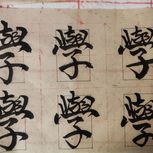 學學學
學學學